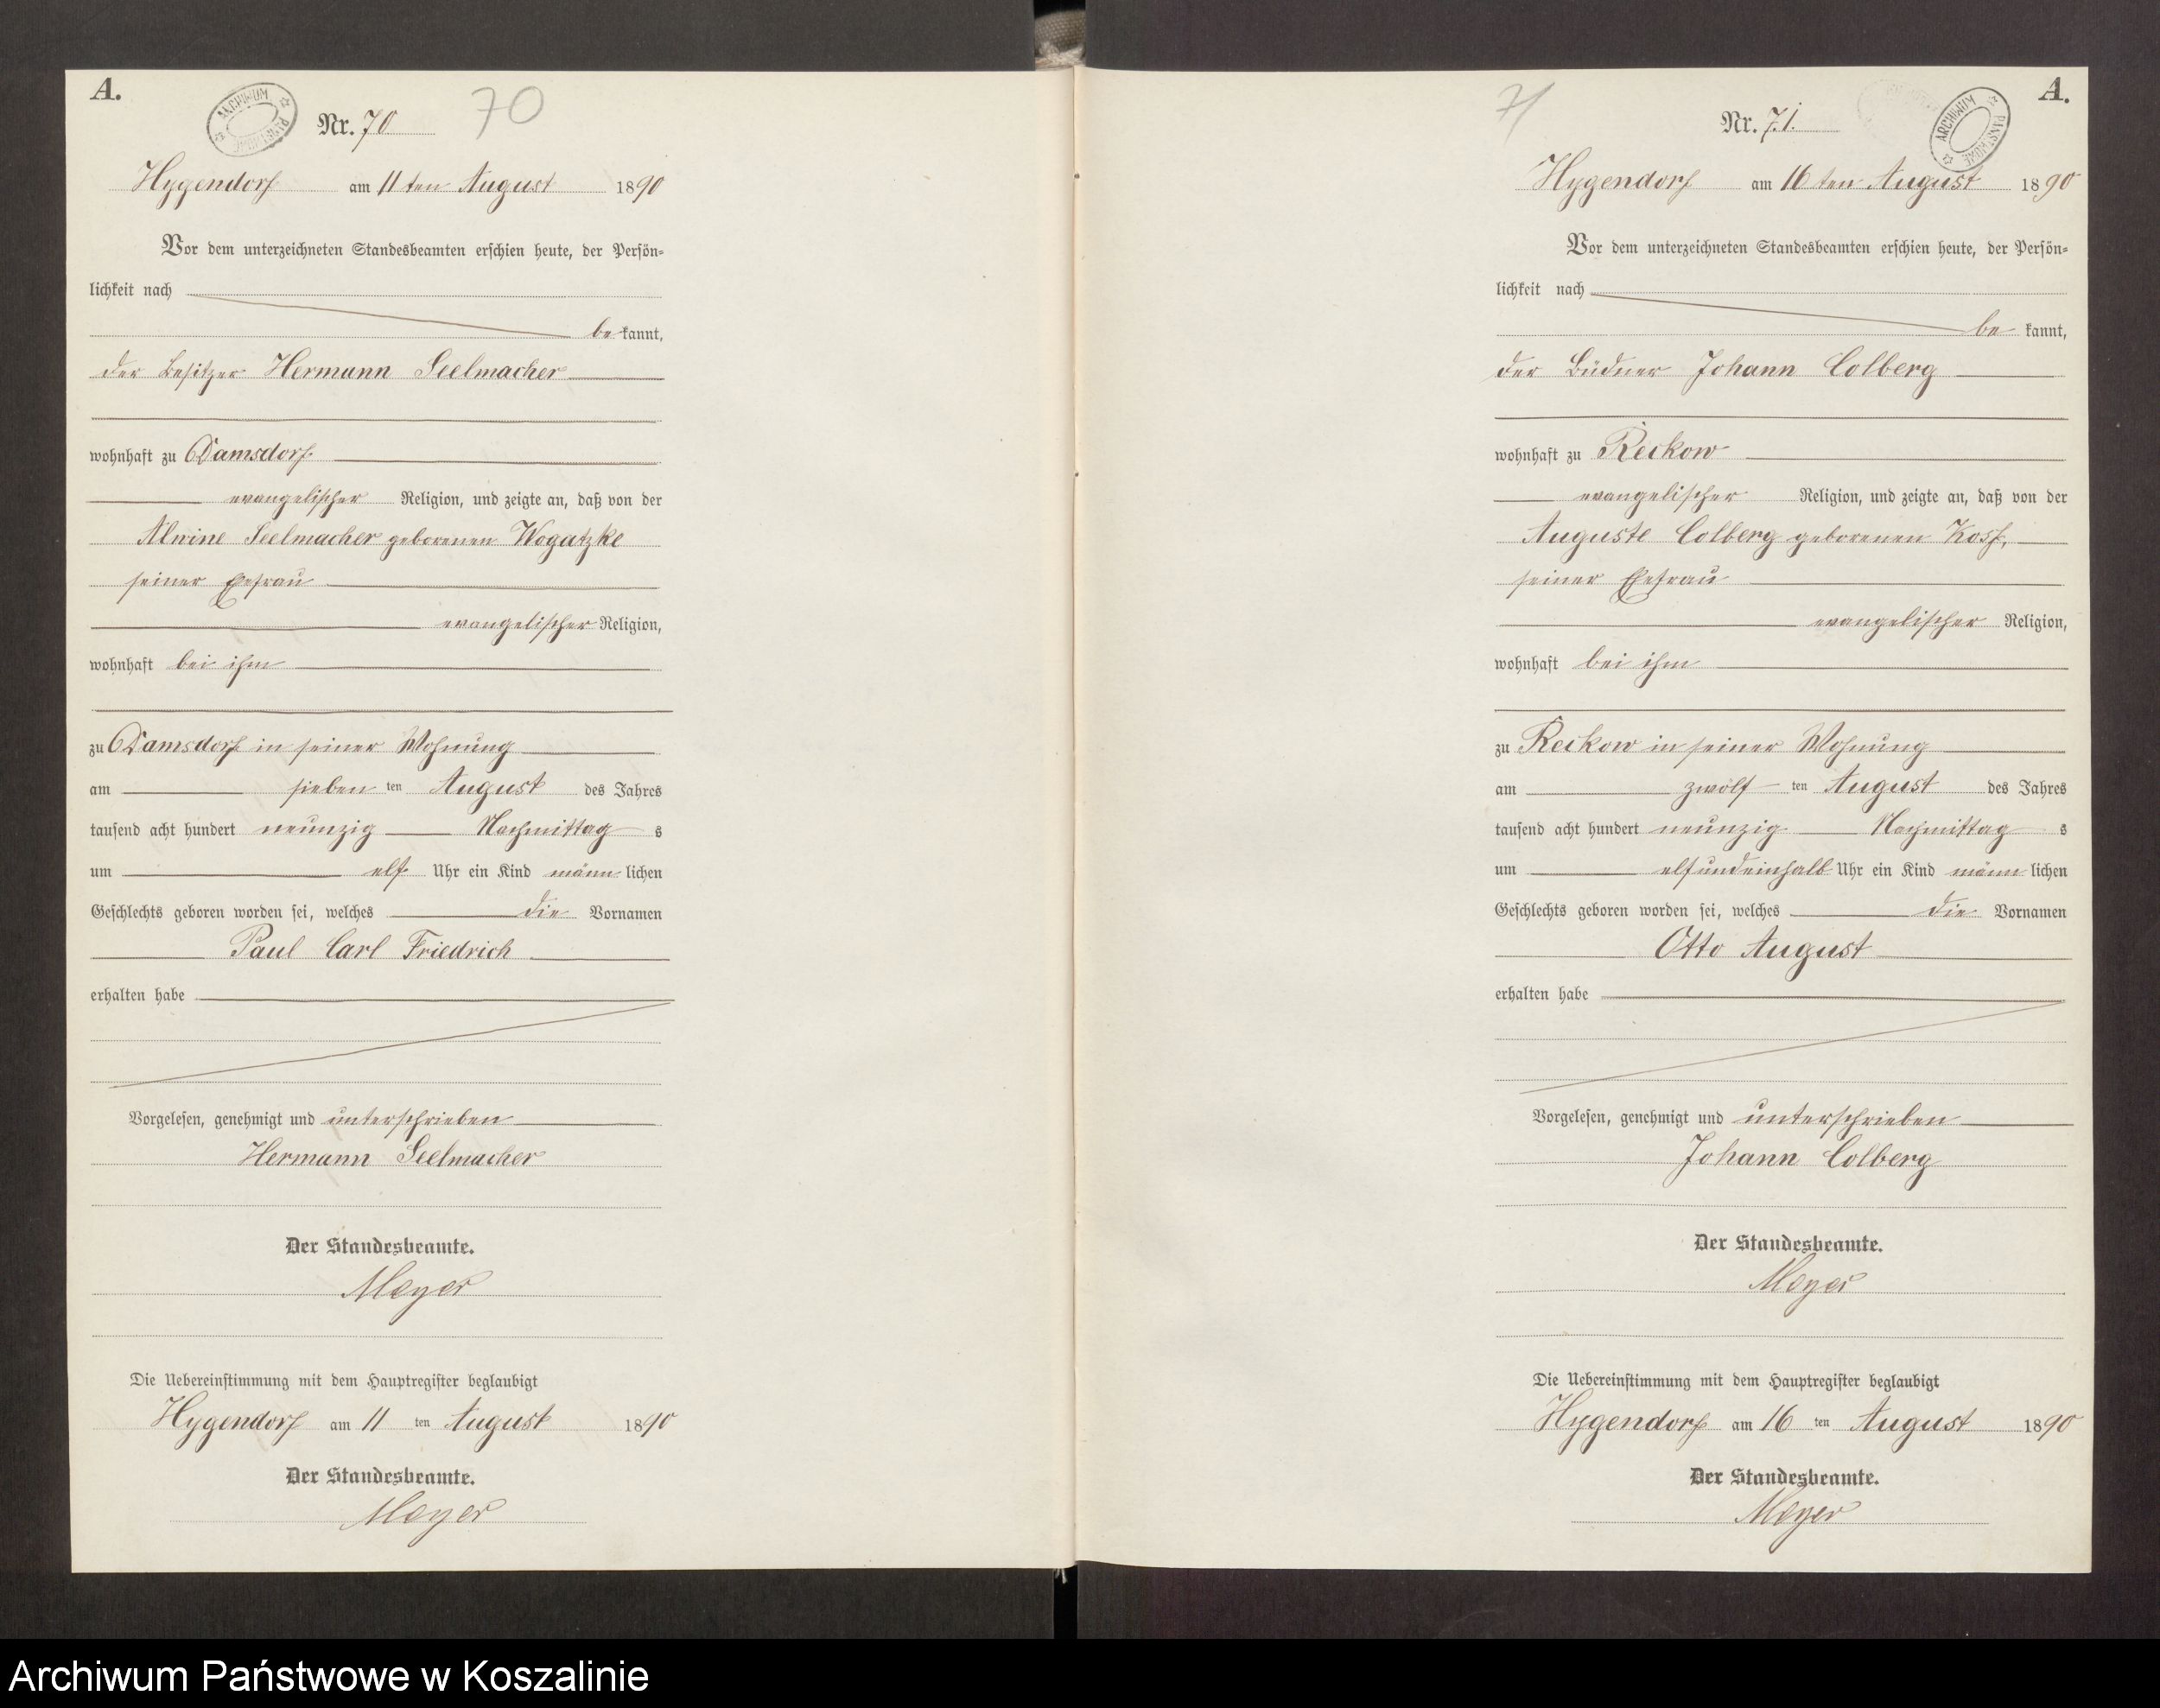 A.
ARCHIWUM PAŃSTWOWE
Nr. 70
70
Hygendorf am 11ten August 1890
Vor dem unterzeichneten Standesbeamten erschien heute, der Persön-
lichkeit nach
be kannt,
der Besitzer Hermann Seelmacher
wohnhaft zu Damsdorf
evangelischer Religion, und zeigte an, daß von der
Alwine Seelmacher geborenen Wogatzke
seiner Ehefrau
evangelischer Religion,
wohnhaft bei ihm
zu Damsdorf in seiner Wohnung
am sieben ten August des Jahres
tausend acht hundert neunzig Nachmittag s
um elf Uhr ein Kind männ lichen
Geschlechts geboren worden sei, welches die Vornamen
Paul Carl Friedrich
erhalten habe
Vorgelesen, genehmigt und unterschrieben
Hermann Seelmacher
Der Standesbeamte.
Meyer
Die Uebereinstimmung mit dem Hauptregister beglaubigt
Hygendorf am 11 ten August 1890
Der Standesbeamte.
Meyer
71
A.
ARCHIWUM PAŃSTWOWE
Nr. 71.
Hygendorf am 16ten August 1890
Vor dem unterzeichneten Standesbeamten erschien heute, der Persön-
lichkeit nach
be kannt,
der Büdner Johann Colberg
wohnhaft zu Reckow
evangelischer Religion, und zeigte an, daß von der
Auguste Colberg geborenen Koss,
seiner Ehefrau
evangelischer Religion,
wohnhaft bei ihm
zu Reckow in seiner Wohnung
am zwölf ten August des Jahres
tausend acht hundert neunzig Nachmittag s
um elfundeinhalb Uhr ein Kind männ lichen
Geschlechts geboren worden sei, welches die Vornamen
Otto August
erhalten habe
Vorgelesen, genehmigt und unterschrieben
Johann Colberg
Der Standesbeamte.
Meyer
Die Uebereinstimmung mit dem Hauptregister beglaubigt
Hygendorf am 16 ten August 1890
Der Standesbeamte.
Meyer
Archiwum Państwowe w Koszalinie